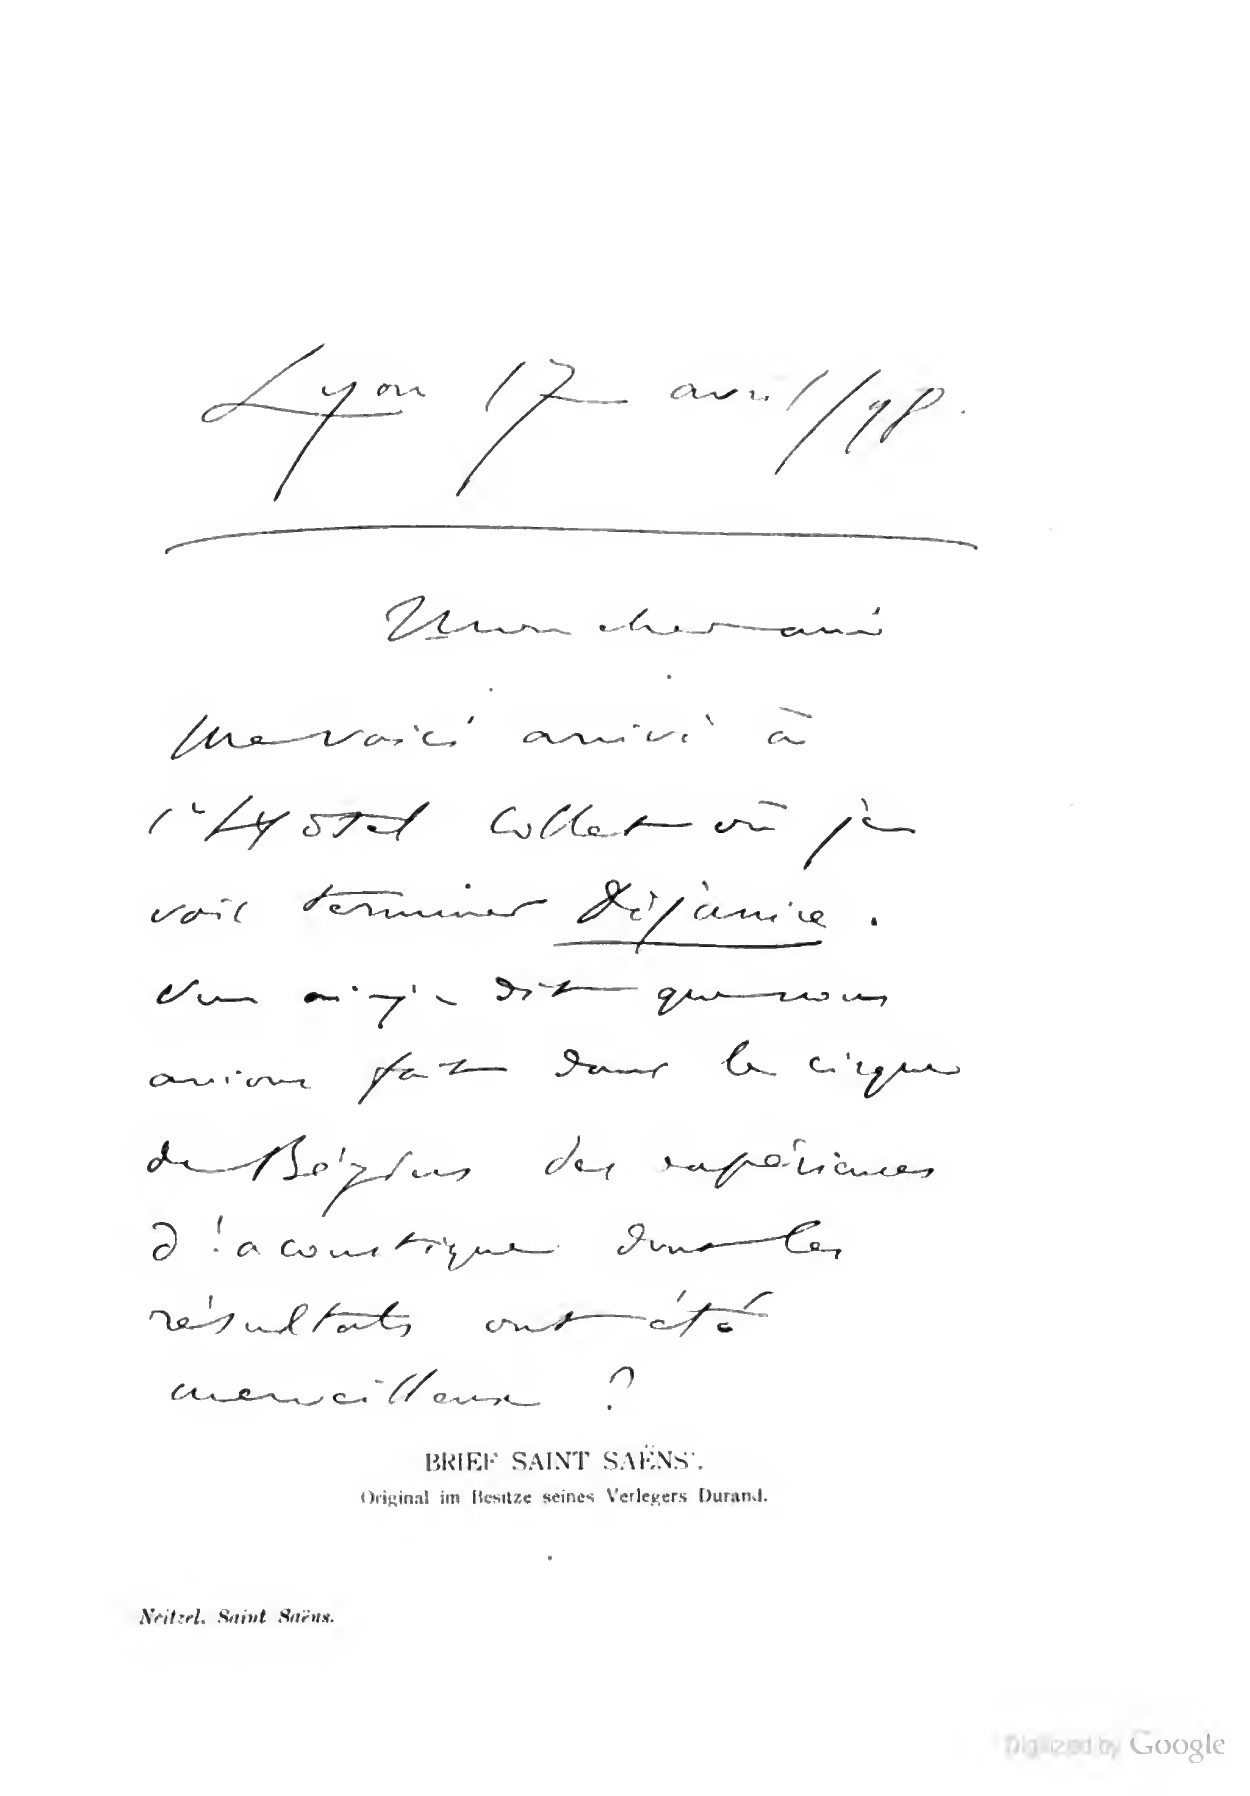 Lyon 17 avril/98.
Mon cher ami
Me voici arrivé à
l'Hôtel Collet où je
vais terminer Déjanire.
Vous ai-je dit que nous
avions fait dans le cirque
de Béziers des expériences
d'acoustique dont les
résultats ont été
merveilleux ?
BRIEF SAINT SAËNS'.
Original im Besitze seines Verlegers Durand.
Neitzel, Saint Saëns.
Digitized by Google